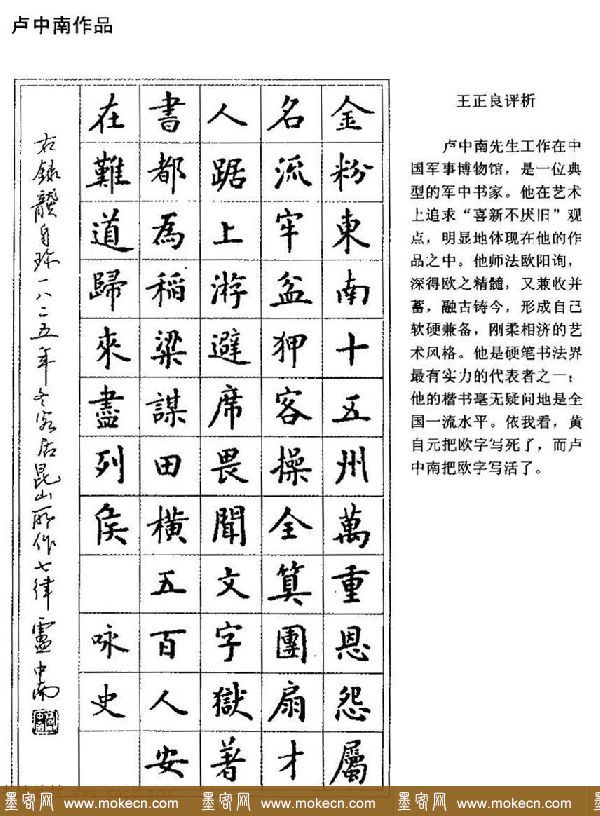 卢中南作品
金粉東南十五州萬重恩怨屬
名流牢盆狎客操全算團扇才
人踞上游避席畏聞文字獄著
書都為稻粱謀田橫五百人安
在難道歸來盡列侯 咏史
右錄龔自珍一八二五年冬客居昆山所作七律 盧中南
王正良评析
卢中南先生工作在中
国军事博物馆，是一位典
型的军中书家。他在艺术
上追求“喜新不厌旧”观
点，明显地体现在他的作
品之中。他师法欧阳询，
深得欧之精髓，又兼收并
蓄，融古铸今，形成自己
软硬兼备，刚柔相济的艺
术风格。他是硬笔书法界
最有实力的代表者之一；
他的楷书毫无疑问地是全
国一流水平。依我看，黄
自元把欧字写死了，而卢
中南把欧字写活了。
墨客网 www.mokecn.com 墨客网 www.mokecn.com 墨客网 www.mokecn.com